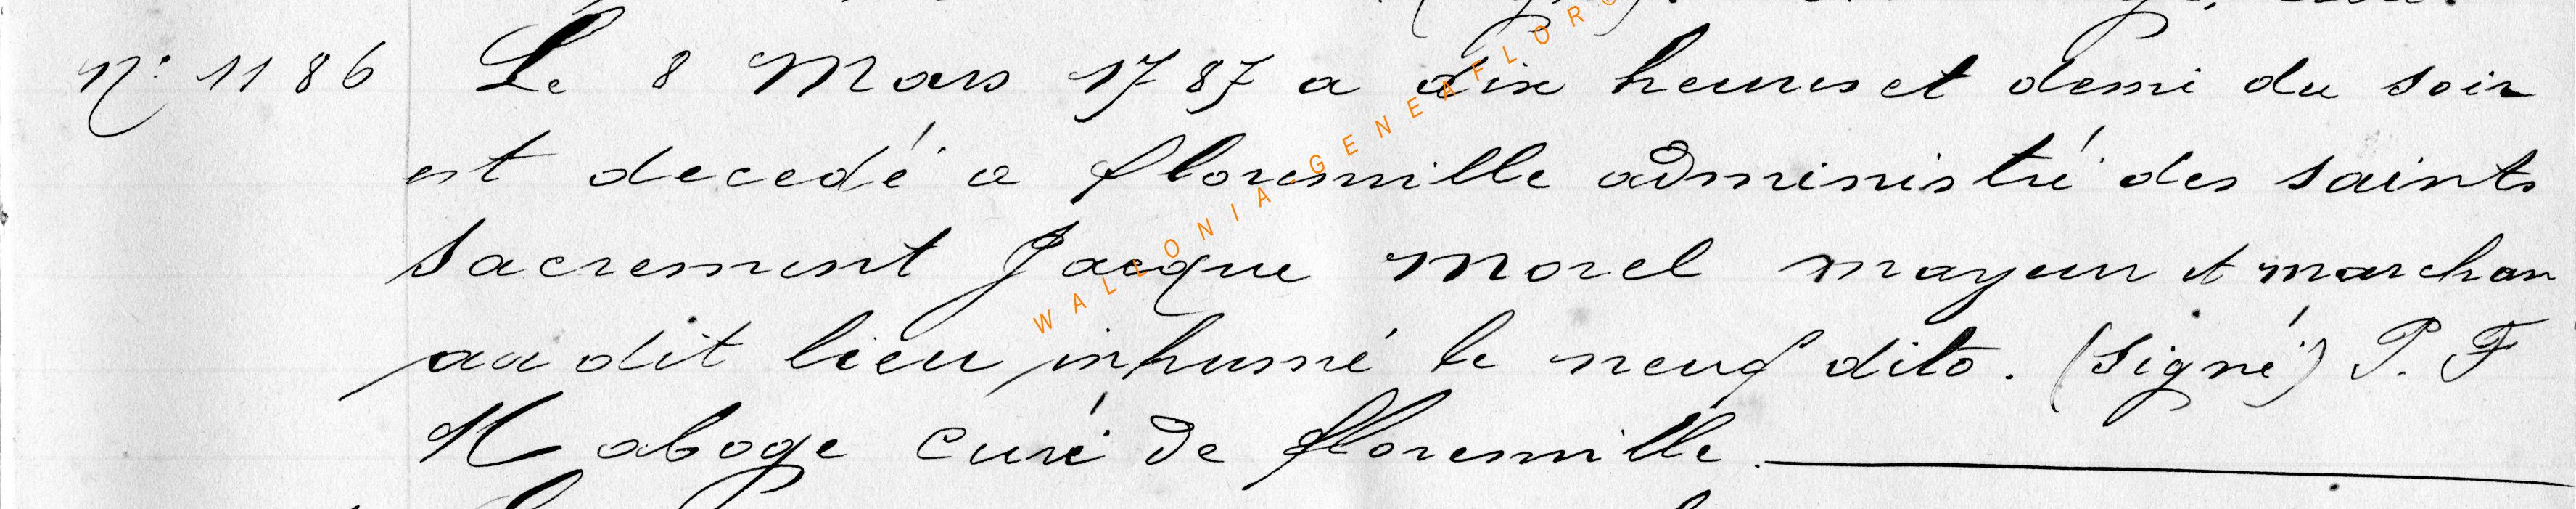 N° 1186 Le 8 Mars 1787 a dix heures et demi du soir
est decedé a florenville administré des saints
sacrement Jacque Morel mayeur et marchan
au dit lieu inhumé le neuf dito. (signé) P. F
Maboge curé de florenville.
WALLONIA-GENEAFLOR